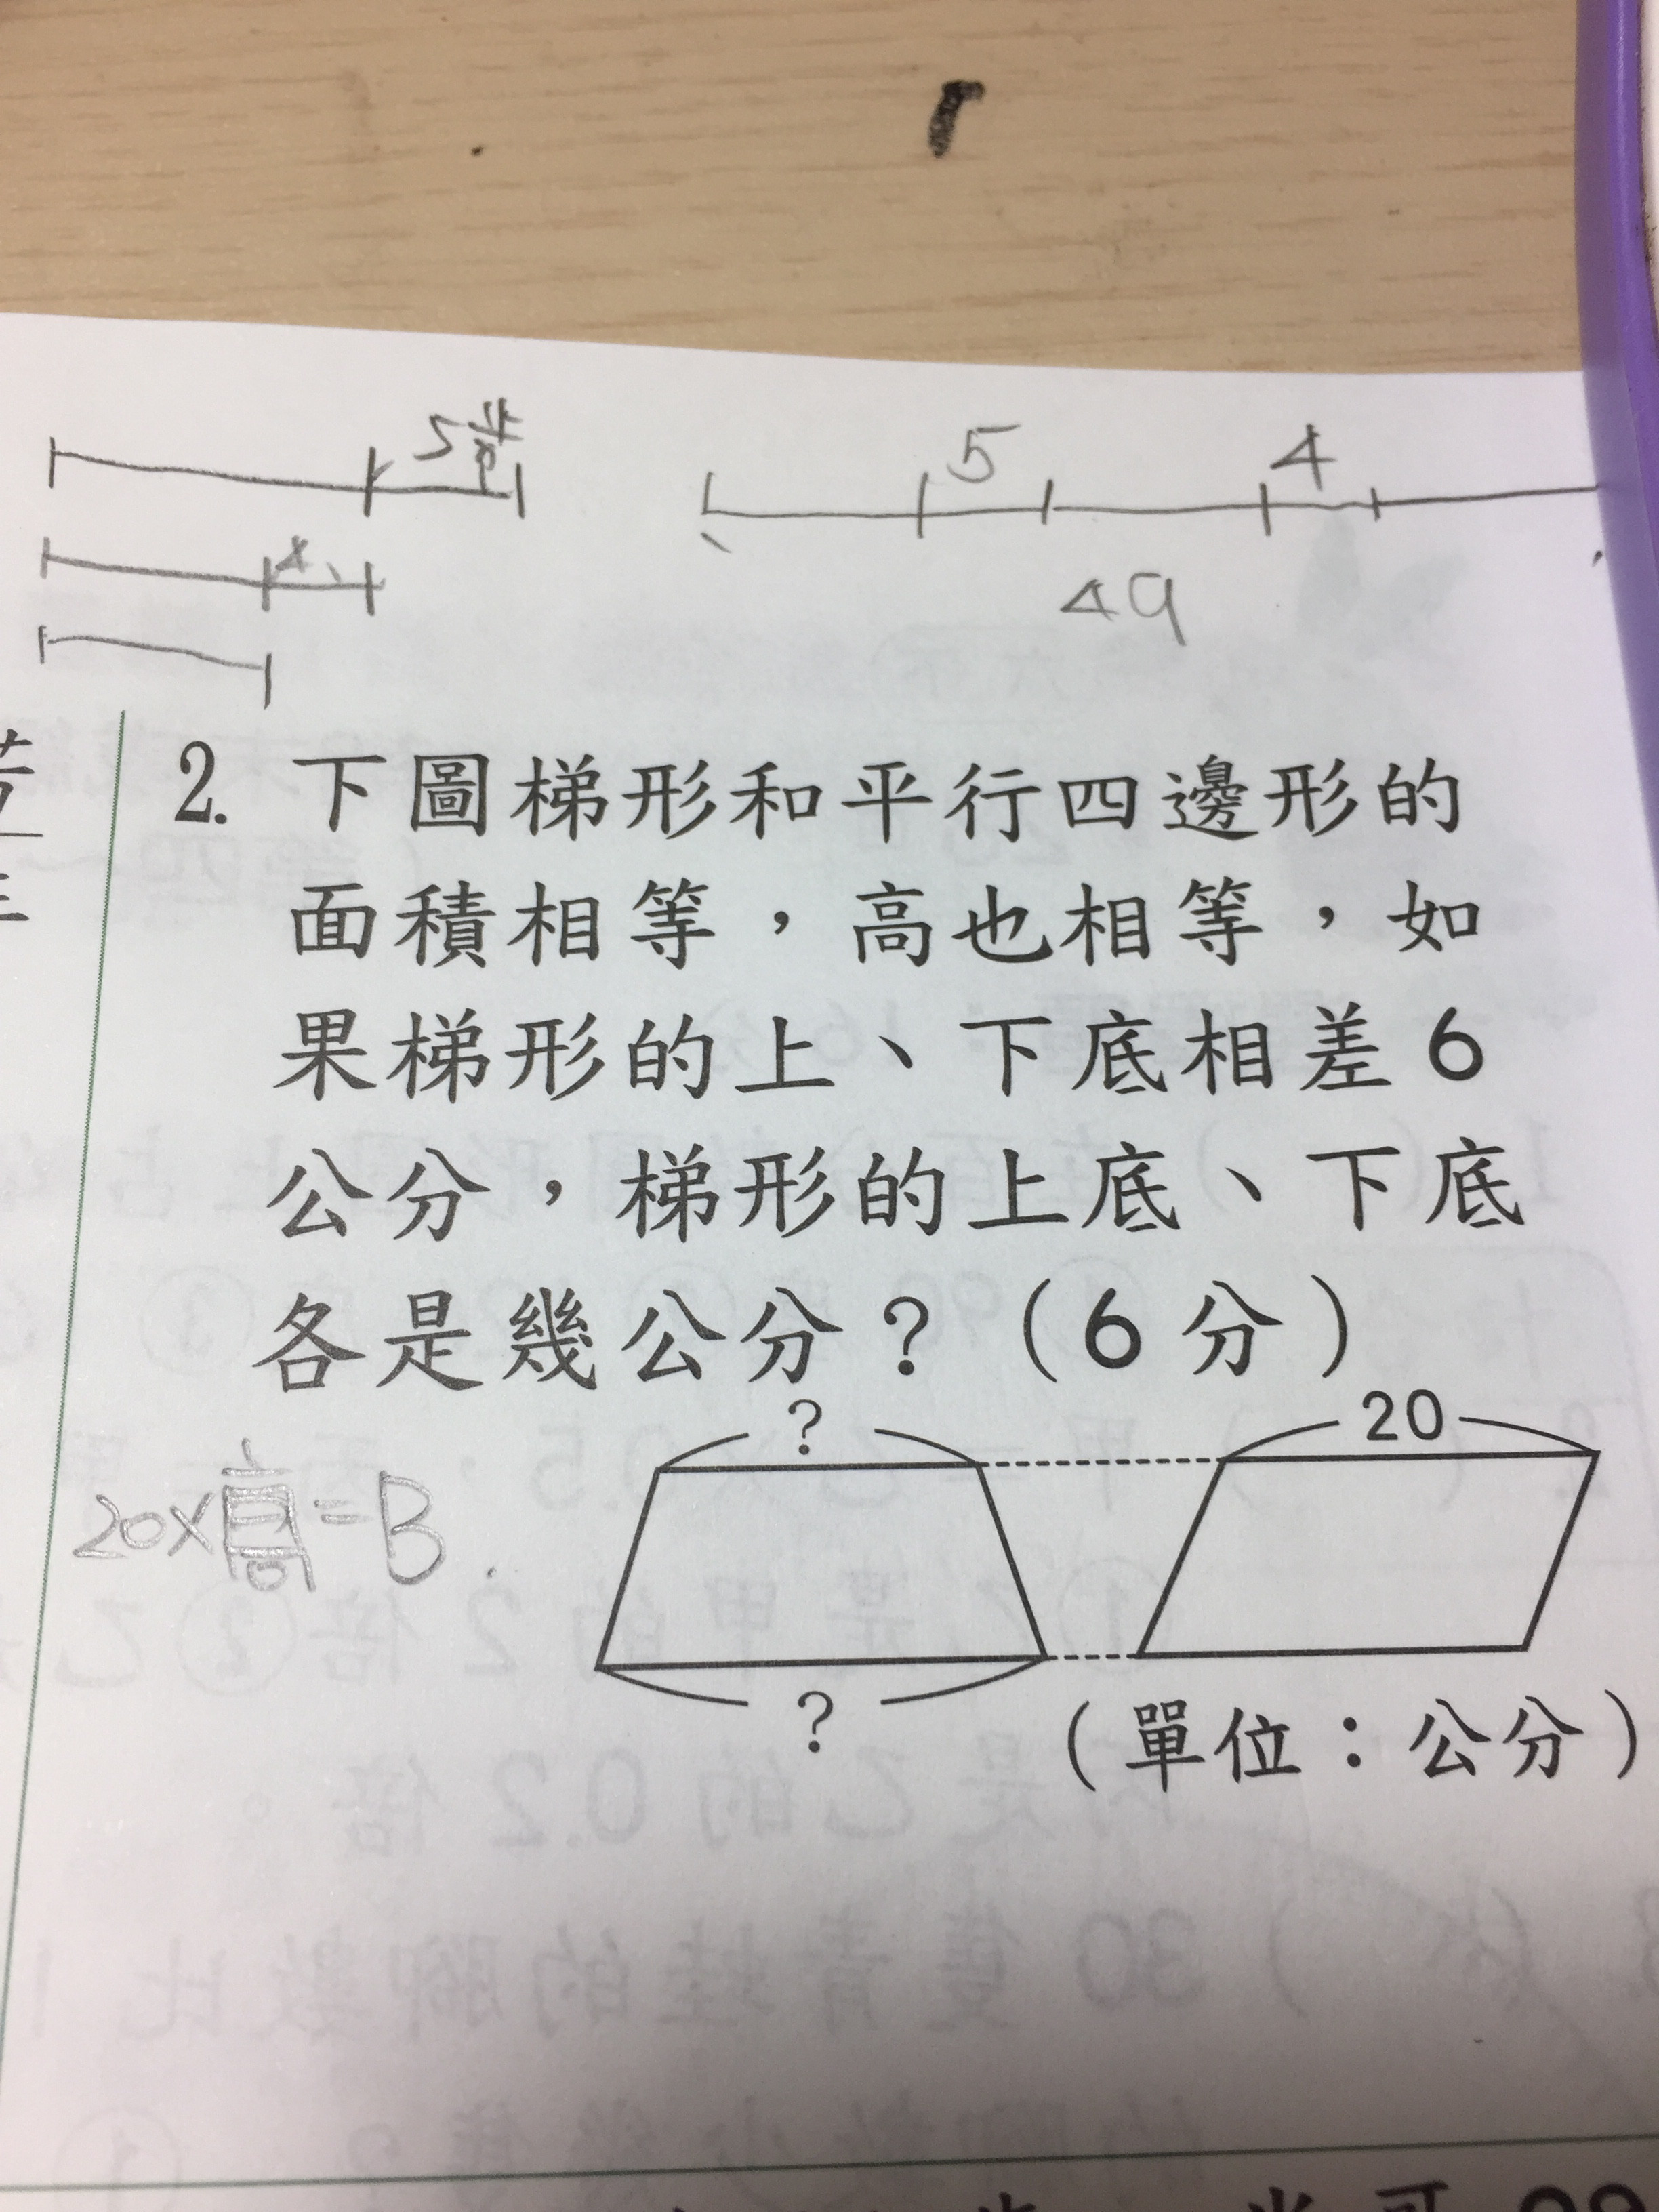 5
4
4
49
2. 下圖梯形和平行四邊形的
面積相等，高也相等，如
果梯形的上、下底相差6
公分，梯形的上底、下底
各是幾公分？（6分）
? 20
20×高=B
?
（單位：公分）